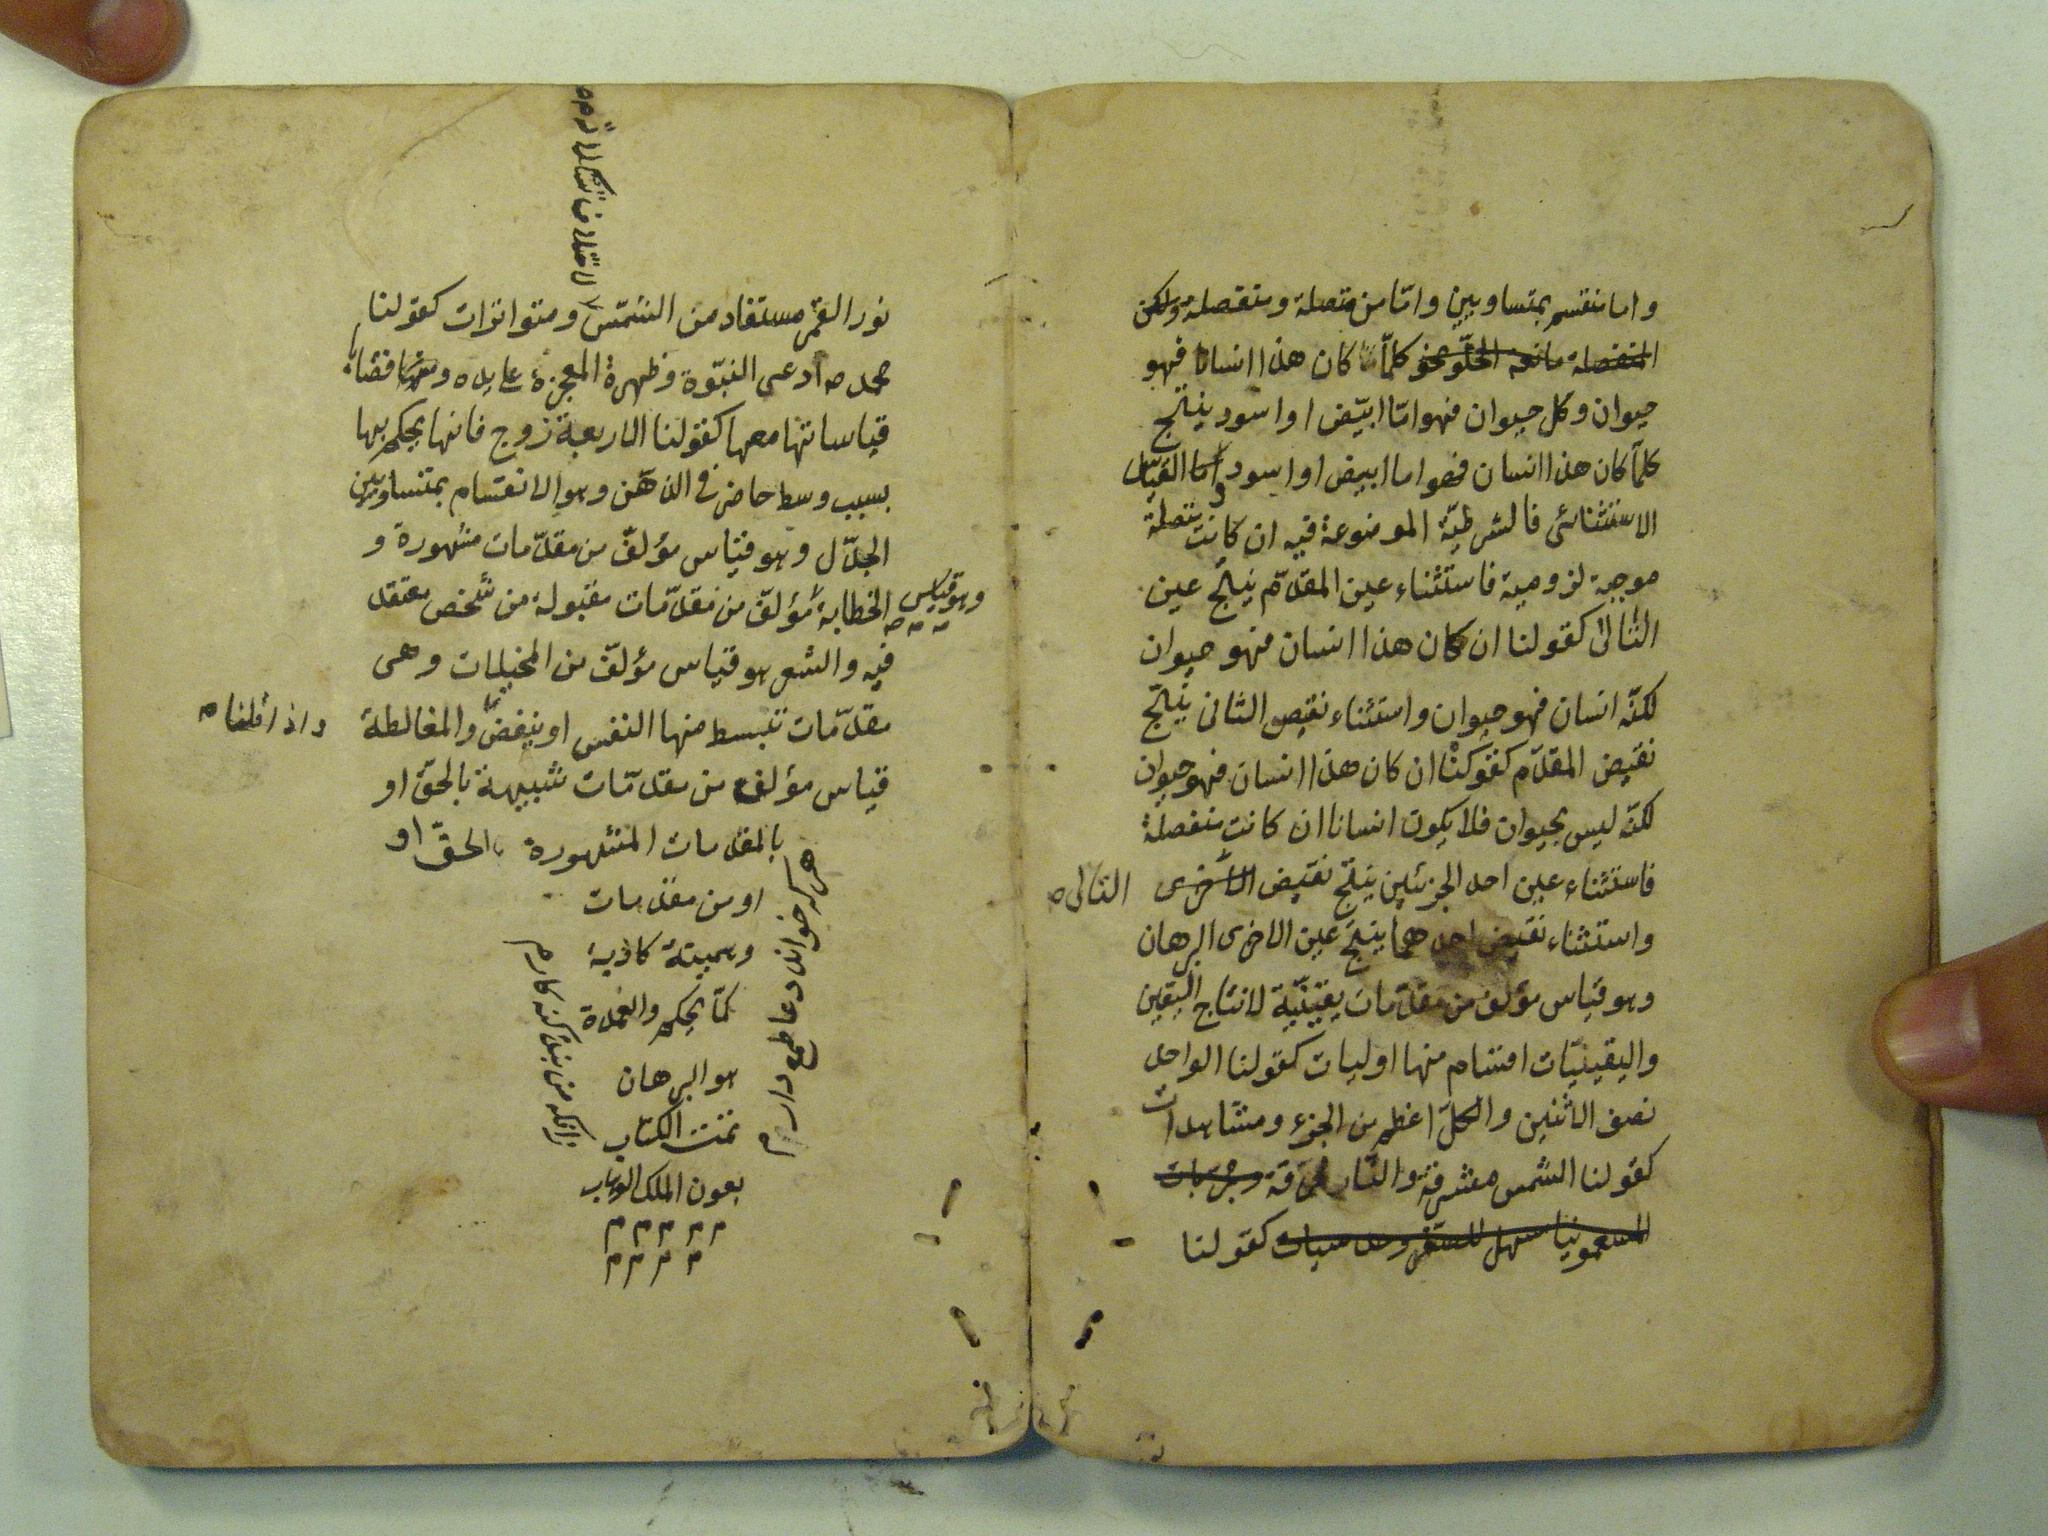 واما منقسم بمتساويين واما من متصلة ومنفصلة ولكن
المنفصلة مانعة الخلو نحو كلما كان هذا انسانا فهو
حيوان وكل حيوان فهو اما ابيض او اسود ينتج
كلما كان هذا انسان فهو اما ابيض او اسود اما القياس
الاستثنائى فالشرطية الموضوعة فيه ان كانت متصلة
موجبة لزومية فاستثناء عين المقدم ينتج عين
التالى كقولنا ان كان هذا انسان فهو حيوان
لكنه انسان فهو حيوان واستثناء نقيض الثانى ينتج
نقيض المقدم كقولنا ان كان هذا انسان فهو حيوان
لكنه ليس بحيوان فلا يكون انسانا ان كانت منفصلة
فاستثناء عين احد الجزئين ينتج نقيض الاخرى
التالى ص
واستثناء نقيض احدهما ينتج عين الاخرى البرهان
وهو قياس مؤلف من مقدمات يقينية لانتاج اليقين
واليقينيات اقسام منها اوليات كقولنا الواحد
نصف الاثنين والكل اعظم من الجزء ومشاهدات
كقولنا الشمس مشرقة والنار محرقة ومجربات
السقمونيا سهل للصفرا وحدسيات كقولنا
نور القمر مستفاد من الشمس ومتواترات كقولنا
محمد ص ادعى النبوة وظهرة المعجزة على يده وقضايا
قياساتها معها كقولنا الاربعة زوج فانها يحكم بها
بسبب وسط حاضر فى الذهن وهو الانقسام بمتساويين
الجدل وهو قياس مؤلف من مقدمات مشهورة و
الخطابة مؤلف من مقدمات مقبولة من شخص معتقد
وهو قياس ص
فيه والشعر هو قياس مؤلف من المخيلات وهى
مقدمات تنبسط منها النفس او ينقض والمغالطة
قياس مؤلف من مقدمات شبيهة بالحق او
بالمقدمات المشهورة بالحق او
او من مقدمات
وهمية كاذبة
كما يحكم والعمدة
هو البرهان
تمت الكتاب
بعون الملك الوهاب
م م م م م
م م م م
هر كه خواند دعا طمع دارم
زانكه من بنده كنه كارم